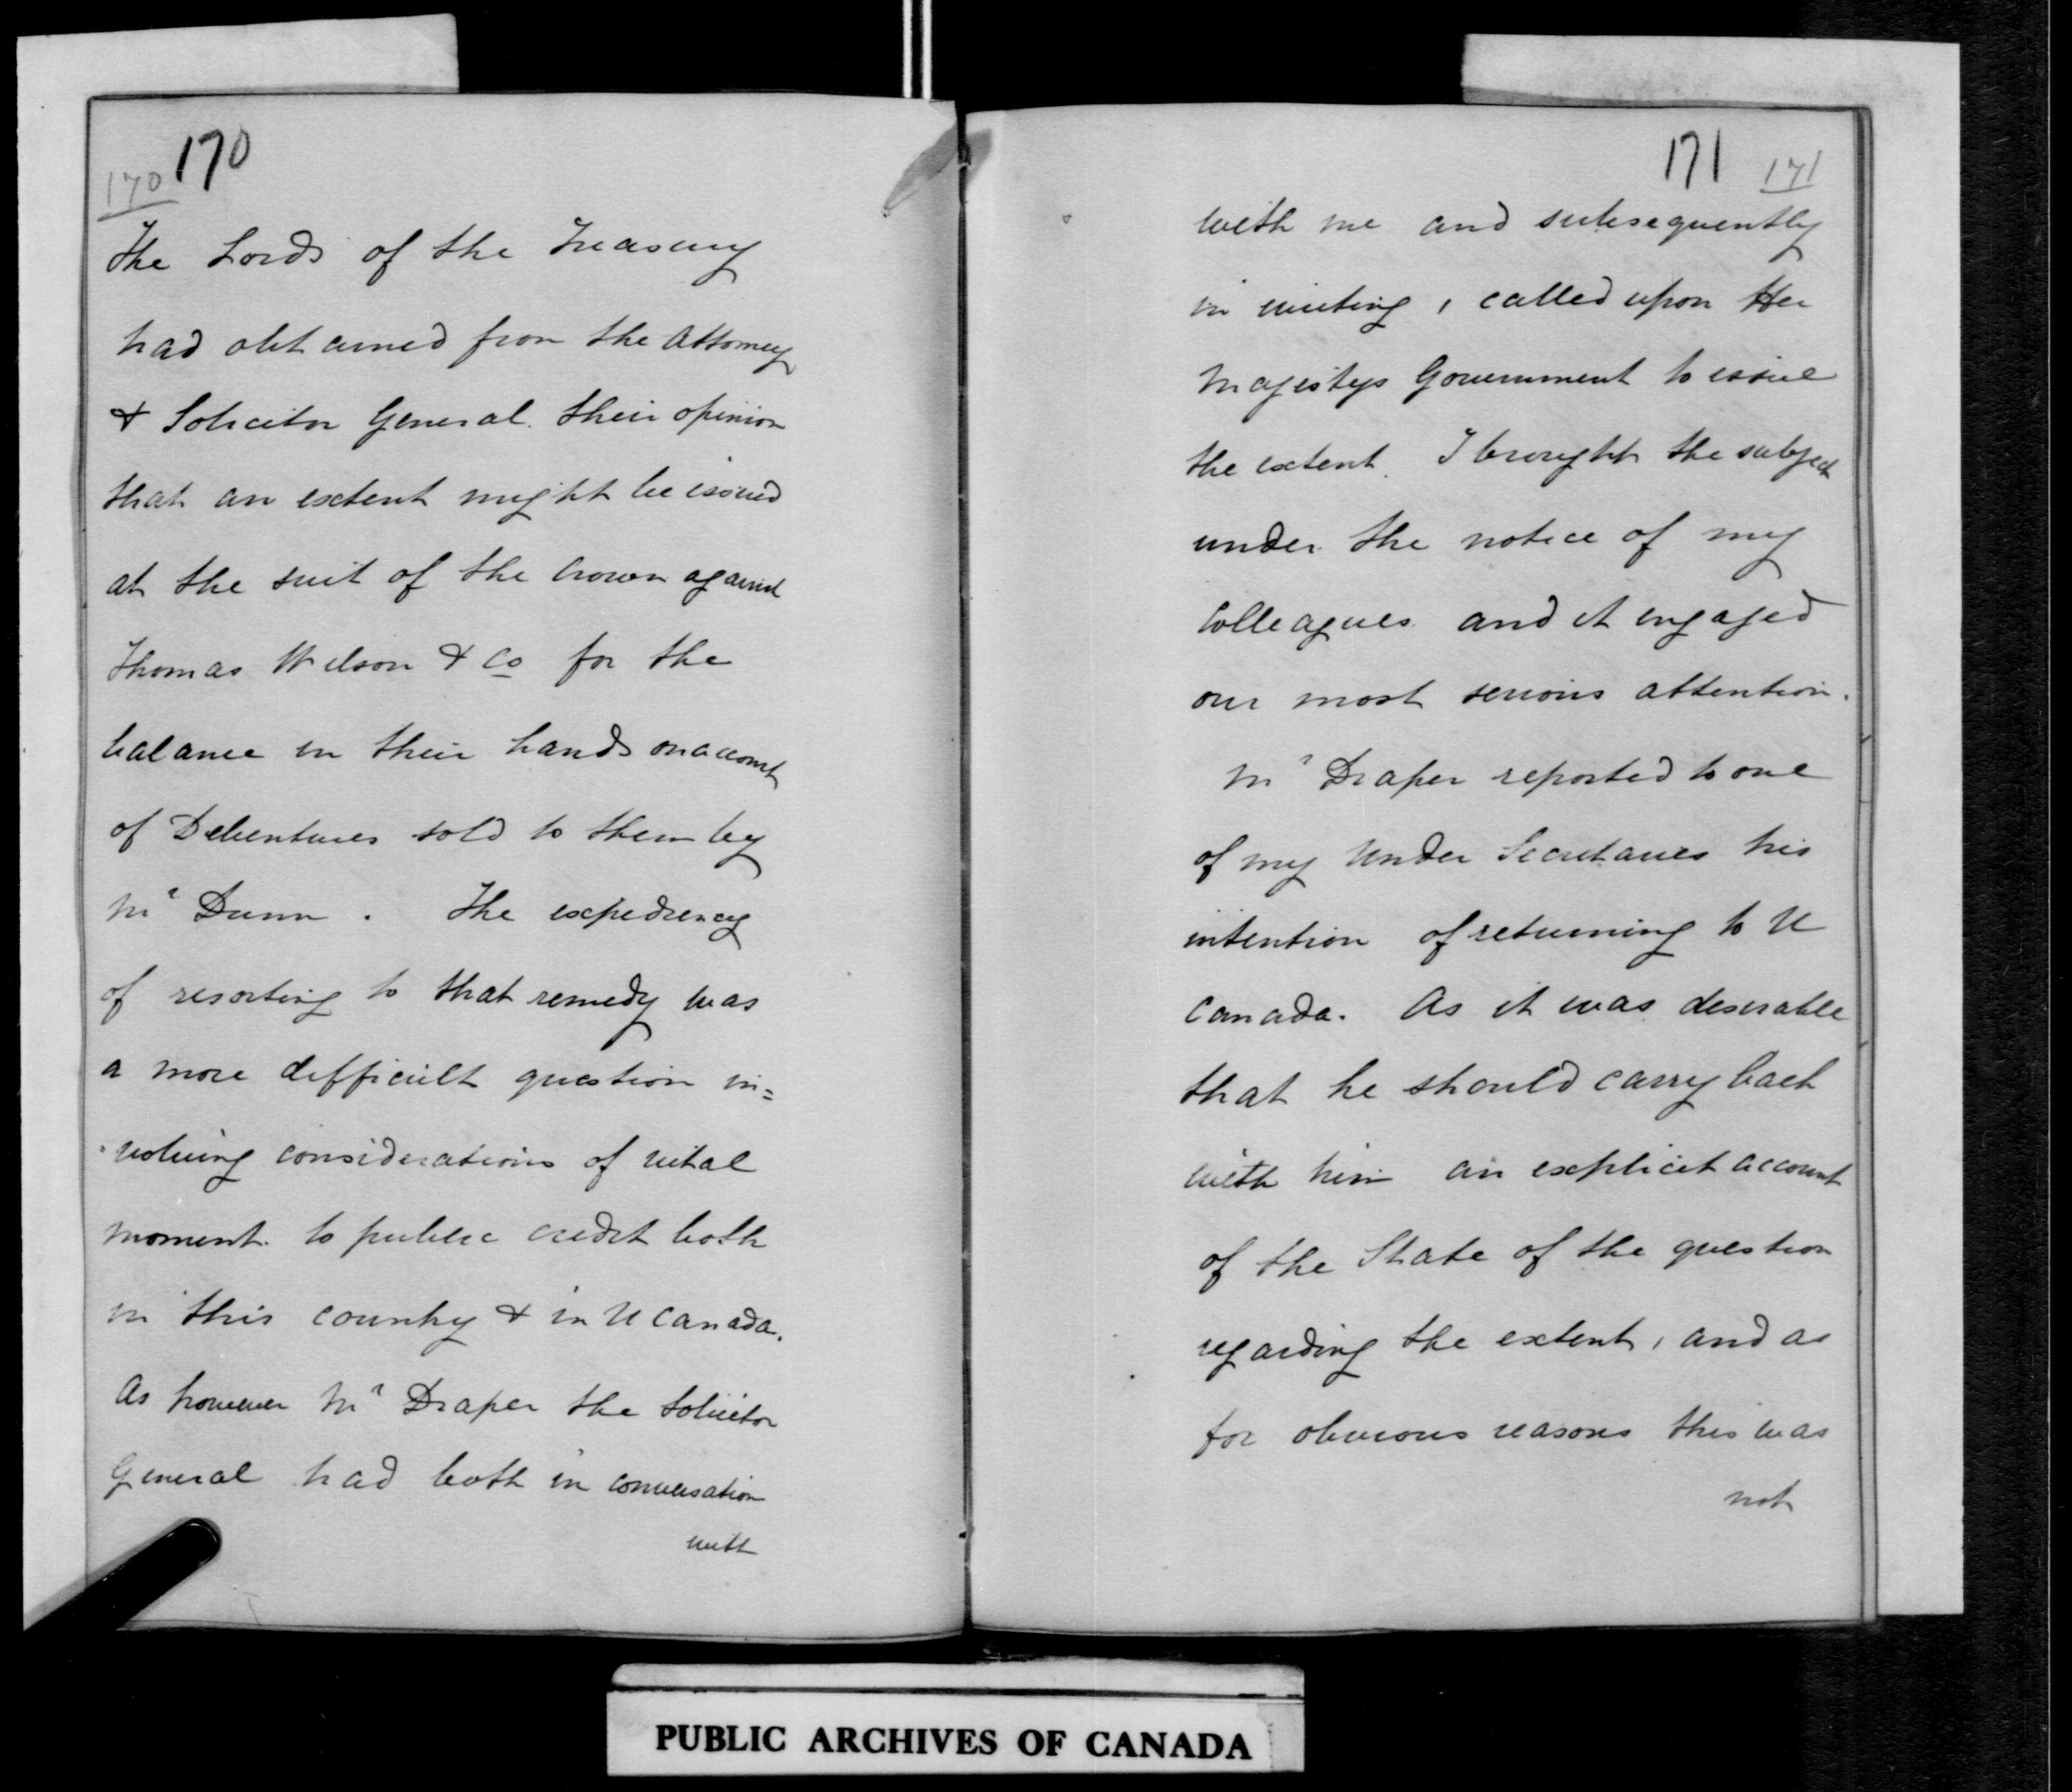 170 170
The Lords of the Treasury
had obtained from the Attorney
& Solicitor General. their opinion
that an extent might be issued
at the suit of the Crown against
Thomas Wilson & Co for the
balance in their hands on account
of Debentures sold to them by
Mr Dunn. The expediency
of resorting to that remedy was
a more difficult question in=
volving considerations of vital
moment. to public credit both
in this country & in U Canada.
As however Mr Draper the Solicitor
General had both in conversation
with
171 171
with me and subsequently
in writing, called upon Her
Majestys Government to issue
the extent. I brought the subject
under the notice of my
Colleagues and it engaged
our most serious attention.
Mr Draper reported to one
of my Under Secretaries his
intention of returning to U
Canada. As it was desirable
that he should carry back
with him an explicit account
of the State of the question
regarding the extent, and as
for obvious reasons this was
not
PUBLIC ARCHIVES OF CANADA